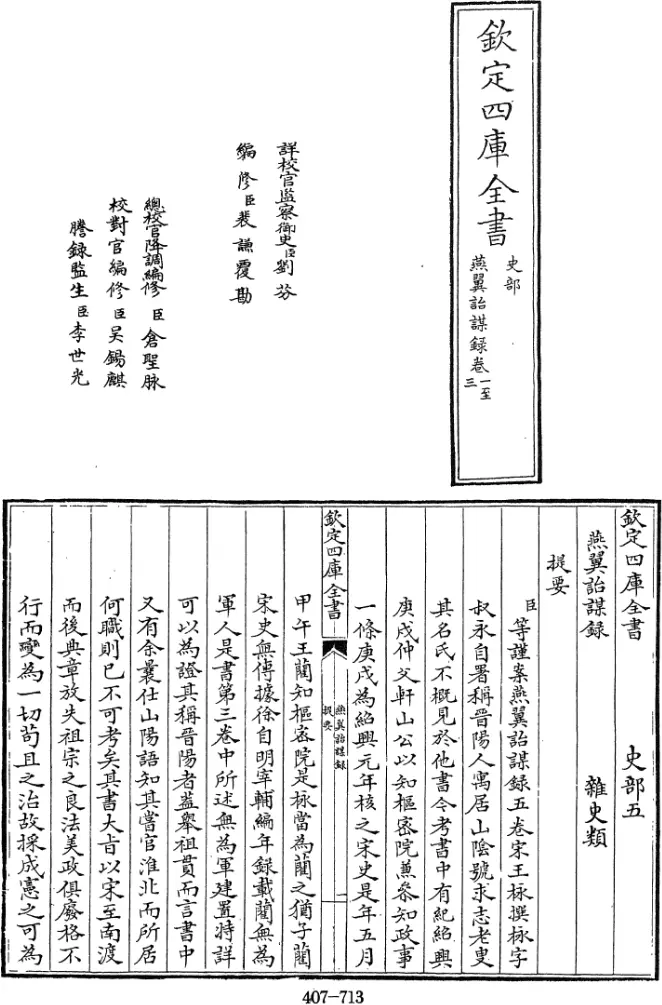 欽定四庫全書
史部
燕翼詒謀録卷一至三
詳校官監察御史臣劉芬
編修臣裴謙覆勘
總校官降調編修臣倉聖脉
校對官編修臣吴錫麒
謄録監生臣李世光
欽定四庫全書
史部五
燕翼詒謀録
雜史類
提要
臣等謹案燕翼詒謀録五卷宋王栐撰栐字
叔永自署稱晉陽人寓居山陰號求志老叟
其名氏不概見於他書今考書中有紀紹興
庚戌仲父軒山公以知樞宻院兼參知政事
一條庚戌為紹興元年核之宋史是年五月
欽定四庫全書
燕翼詒謀録
提要
一
甲午王藺知樞宻院是栐當為藺之猶子藺
宋史無傳據徐自明宰輔編年録載藺無為
軍人是書第三卷中所述無為軍建置特詳
可以為證其稱晉陽者蓋舉祖貫而言書中
又有余曩仕山陽語知其嘗官淮北而所居
何職則已不可考矣其書大㫖以宋至南渡
而後典章放失祖宗之良法美政俱廢格不
行而變為一切茍且之治故採成憲之可為
407-713